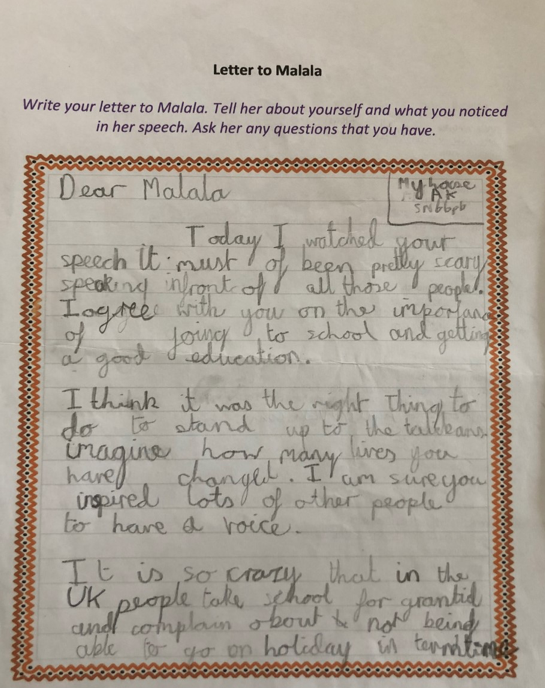 Letter to Malala
Write your letter to Malala. Tell her about yourself and what you noticed
in her speech. Ask her any questions that you have.
My house
AK
Dear Malala
Today I watched your
speech it must of been pretty scary
speaking infront of all those people.
I agree with you on the importanc
of joing to school and getting
a good education.
I think it was the right thing to
do to stand up to the
imagine how many lives you
have changed. I am sure you
inspired lots of other people
to have a voice.
It is so crazy that in the
UK people take school for grantid
and complain about not being
able to go on holiday in termtime